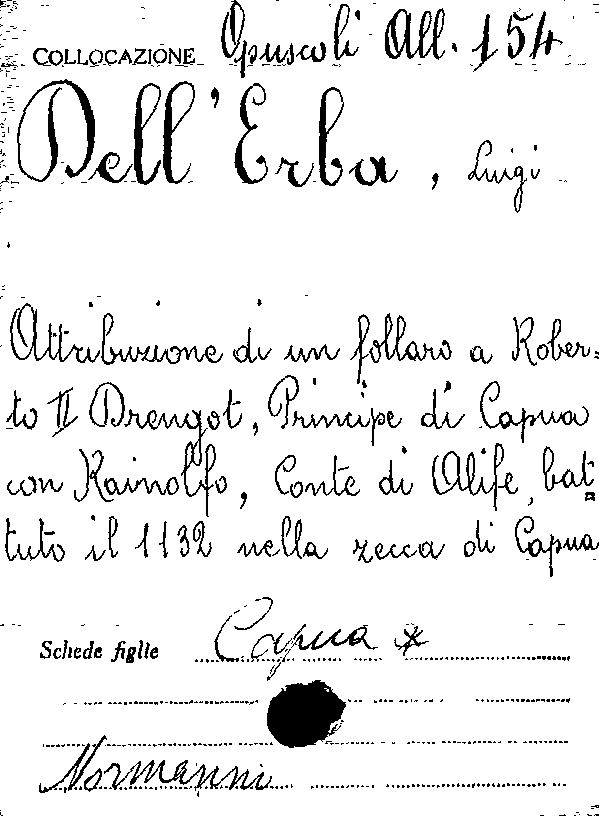 COLLOCAZIONE Opuscoli All. 154
Dell'Erba, Luigi
Attribuzione di un follaro a Rober=
to II Drengot, Principe di Capua
con Rainolfo, Conte di Alife, bat=
tuto il 1132 nella zecca di Capua
Schede figlie Capua *
Normanni